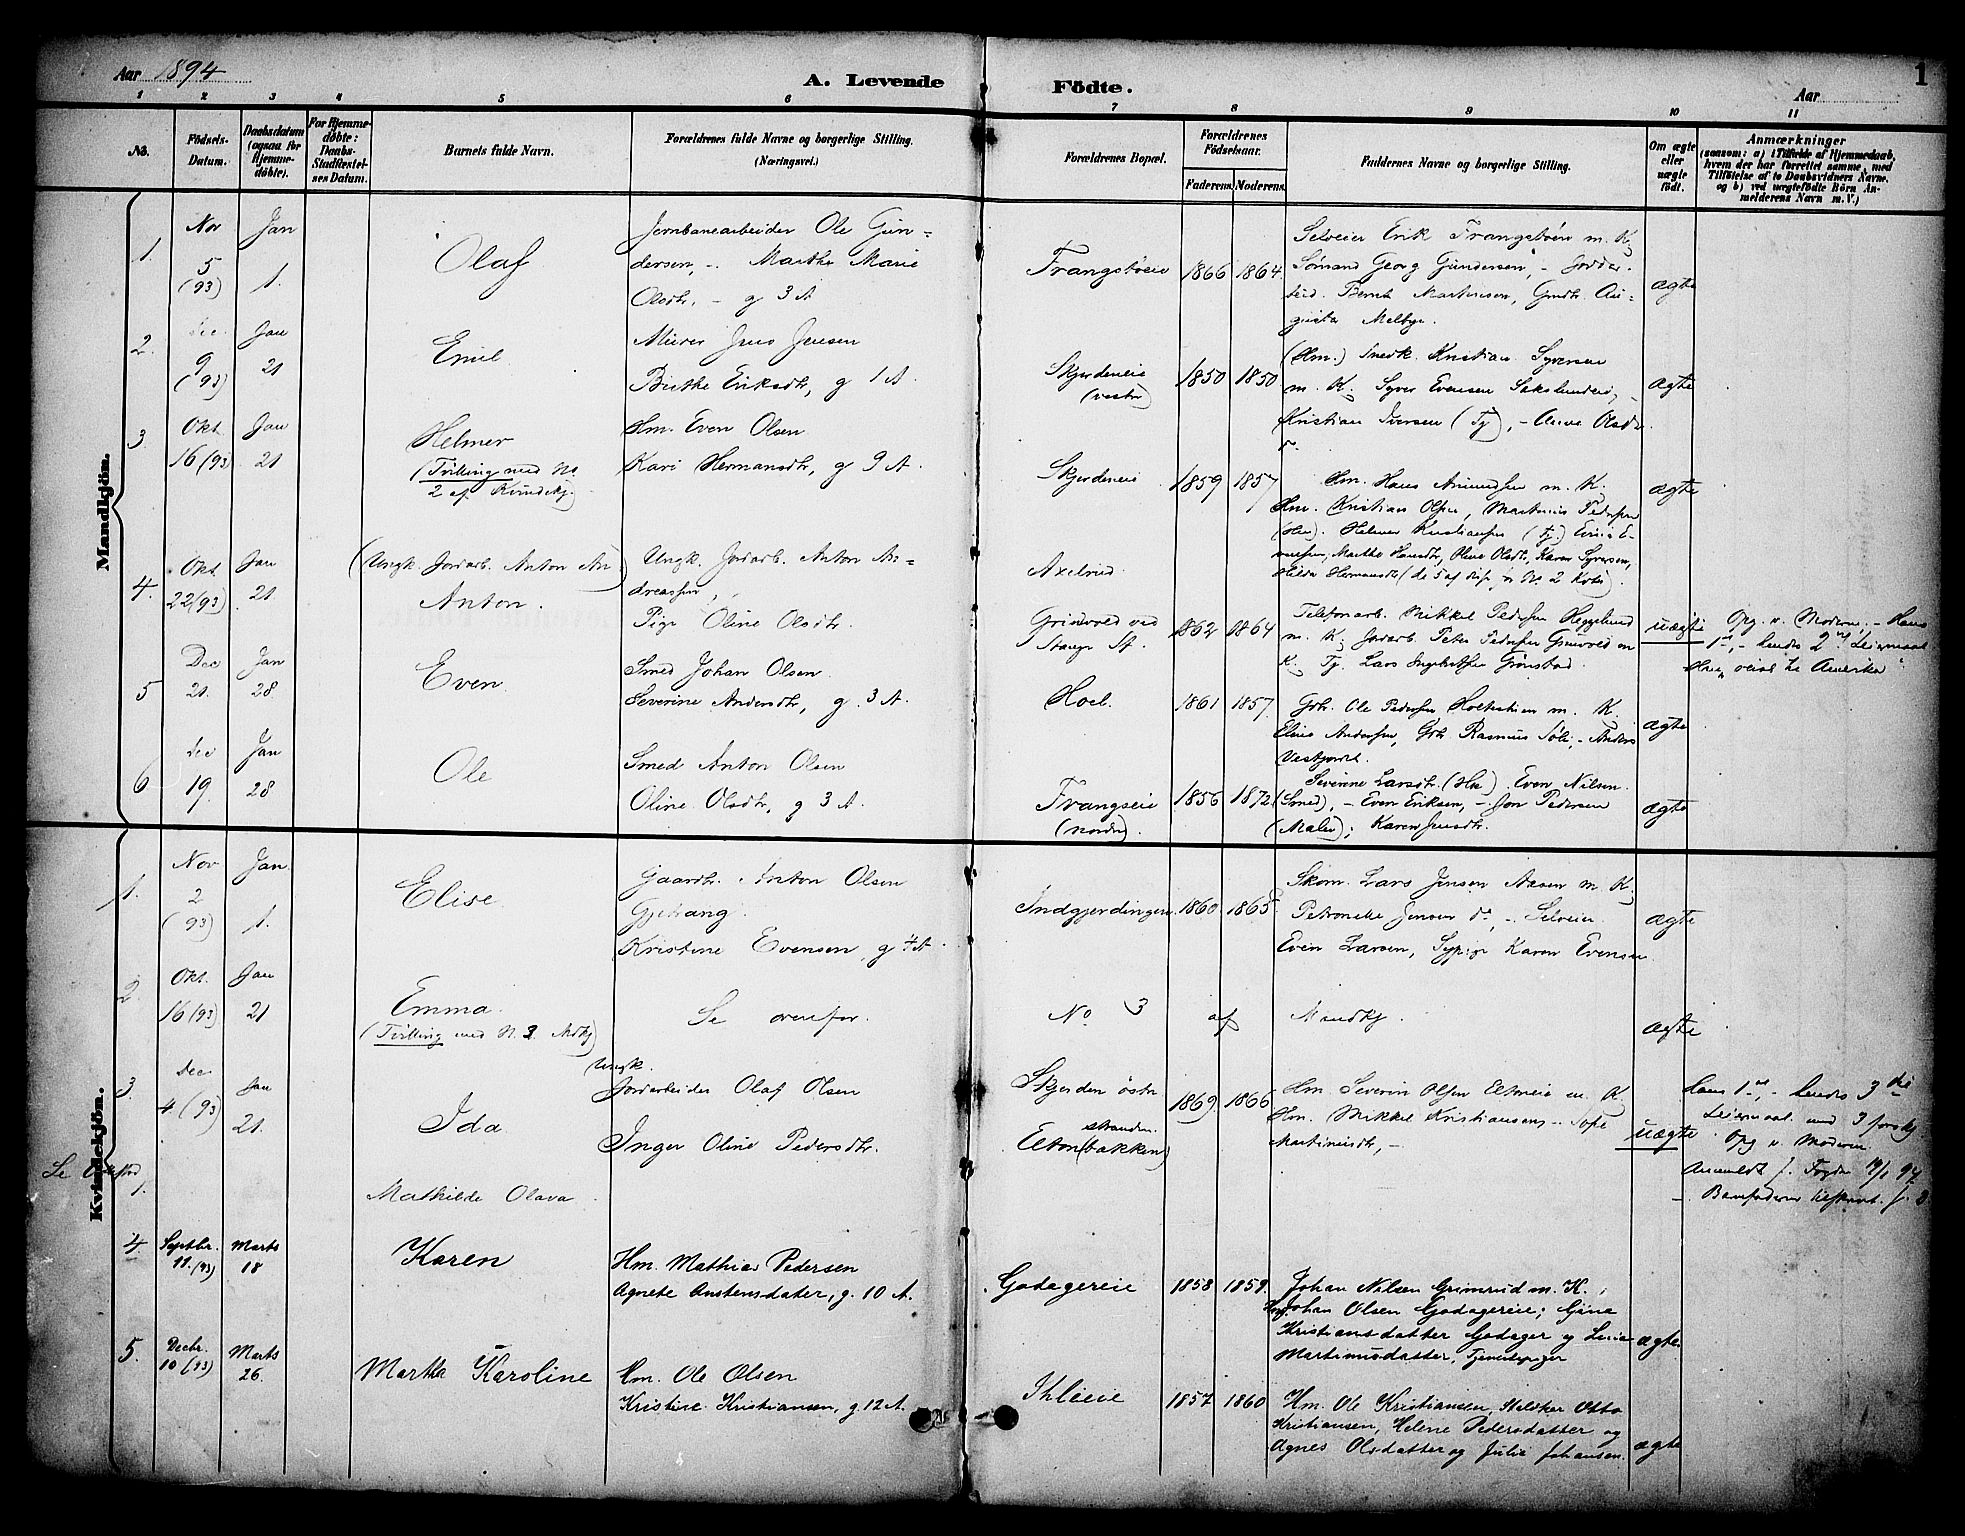 Aar 1894
A. Levende Födte.
Aar
1
1 2 3 4 5 6 7 8 9 10 11
No.
Födsels-Datum.
Daabsdatum (ogsaa for Hjemme-döbte).
For Hjemme-döbte: Daabs-Stadfæstelses Datum.
Barnets fulde Navn.
Forældrenes fulde Navne og borgerlige Stilling. (Næringsvei.)
Forældrenes Bopæl.
Forældrenes Födselsaar.
Faderens. Moderens.
Faddernes Navne og borgerlige Stilling.
Om ægte eller uægte födt.
Anmærkninger
(saasom: a) i Tilfælde af Hjemmedaab, hvem der har forrettet samme, med Tilföielse af to Daabsvidners Navne, og b) ved uægtefödte Börn Anmelderens Navn m. V.)
Mandkjön.
1. Nov 5 (93) Jan 1. Olaf
Jernbanearbeider Ole Gun-
dersen, -. Marthe Marie
Olsdtr. - g 3 A
Frangstöeie 1866 1864
Selveier Erik Frangstöen m. K;
Sömand Georg Gundersen, -
Bernt Martinsen, Grndtr. Au-
gusta Melbye.
ægte
2. Dec 9 (93) Jan 21 Emil.
Murer Jens Jensen
Birthe Eriksdtr, g 1 A.
Skjerdeneie (vestr) 1850 1850
(Hm.) Snedk. Kristian Syversen
m. K; Syver Evensen
Kristian Iversen (Tj), - Olsdtr
do
ægte
3 Okt 16 (93) Jan 21 Helmer
(Tvilling med No
2 af Kvindekj.
Hm. Even Olsen
Kari Hermansdtr, g 9 A.
Skjerdeneie 1859 1857
Hm. Hans Amundsen m. K.
Hm. Kristian Olsen, Martinus Pedersen
(Hm). Helmer Kristiansen (Tj.) E-
vensen, Marthe Hansdtr, Oline Olsdtr, Karen Syversen,
Hilda Hermansdtr (de 5 af disse v. No. 2 Kvkj).
ægte
4. Okt 22 (93) Jan 21 (Ungk. Jordarb. Anton An)
Anton.
Ungk. Jordarb. Anton An-
dreasen,
Pige Oline Olsdtr.
Axelrud
Grinvold ved
Stange St. 1862 1864
Telefonarb. Mikkel Pedersen
m. K; Jordarb. Peter Pedersen Grinvold m
K; Tj. Lars Ingebretsen Grønstad.
uægte
Opg. v. Moderen, - Hans
1ste, - hendes 2det Leiermaal
Han reist til Amerika
5 Dec 21. Jan 28 Even
Smed Johan Olsen.
Severine Andersdtr, g. 3 A.
Hoel. 1861 1857.
Grbr. Ole Pedersen Holtestien m. K.
Andersen, Grbr Rasmus - Anders
ægte
6 Dec 19. Jan 28 Ole
Smed Anton Olsen
Oline Olsdtr, g 3 A.
Frangseie (nordre) 1856 1872
Severine Larsdtr (Hk). Even Nilsen.
(Smed), - Even Eriksen, - Jon Pedersen
(Maler); Karen Jensdtr.
ægte
Kvindekjön.
1. Nov 2 (93) Jan 1. Elise
Gaardbr. Anton Olsen
Gjetvang.
Kristine Evensen, g 4 A.
Indgjerdingen 1860 1865
Skom. Lars Jensen Aasen m K;
Petronelle Jensen do, - Selveier
Even Larsen, Sypige Karen Evensen
ægte
2 Okt. 16 (93) Jan 21 Emma
(Tvilling med N. 3. Mdkj)
Se ovenfor. No 3 af Mandkj.
ægte
3 Dec 4 (93) Jan 21. Ida
Ungk.
Jordarbeider Olaf Olsen
Inger Oline Pedersdtr.
Skjerden östr
Elton (stranden bakken) 1869 1866
Hm. Severin Olsen Eltoneie m. K.
Hm. Mikkel Kristiansen - Sofie
Martinusdtr, -
uægte
Hans 1ste, - hendes 3die
Leiermaal med 3 forskj.
Opg v. Moderen
Anmeldt f. Fogden 19/1 94
- Barnefaderen
Mathilde Olava
4. Septbr. 11. (93) Marts 18 Karen
Hm. Mathias Pedersen
Agnete Anstensdatter, g. 10 A.
Godagereie 1858 1859.
Johan Nilsen Grimsrud m. K.,
Hm. Johan Olsen Godagereie; Gina
Kristiansdatter Godager og
Martinusdatter, Tjenestepiger
ægte
5. Decbr. 10 (93) Marts 26. Martha Karoline
Hm. Ole Olsen
Kristine Kristiansen, g. 12 A.
Ihleeie 1857 1860
Hm. Ole Kristiansen, Otto
Kristiansen, Helene Pedersdatter og
Agnes Olsdatter og Julie Johansen.
ægte